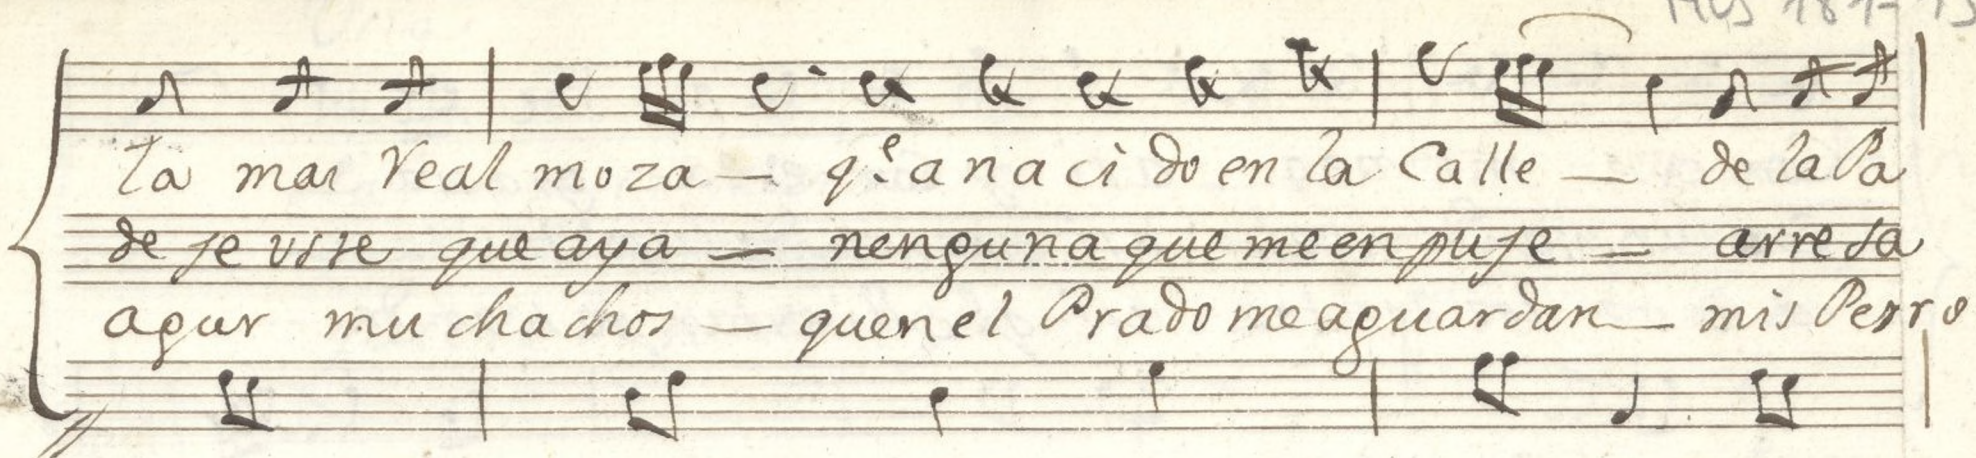 Mus 181-13
la mas Real moza — q.e a nacido en la Calle — de la Pa
de se viste que aya — nenguna que me enpuje — arresa
agur muchachos — quenel Prado me aguardan — mis Perro